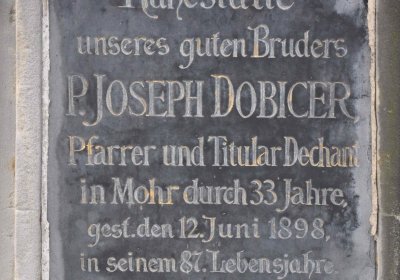 Ruhestätte
unseres guten Bruders
P. JOSEPH DOBICER,
Pfarrer und Titular Dechant
in Mohr durch 33 Jahre,
gest. den 12. Juni 1898,
in seinem 87. Lebensjahre